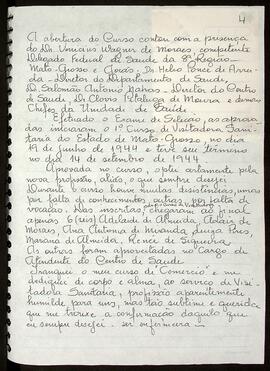 4
A abertura do Curso contou com a presença
do Dr. Vinicius Wagner de Moraes, competente
Delegado Federal de Saúde da 8ª Região -
Mato-Grosso e Goiás. Dr. Hélio Ponce de Arru-
da - Diretor do Departamento de Saúde,
Dr. Salomão Antonio Nahas - Diretor do Centro
de Saúde. Dr. Clovis Pitaluga de Moura e demais
Chefes da Unidade de Saúde
Efetuado o Exame de Seleção, as aprova-
das iniciaram o 1º Curso de Visitadora Sani-
tária do Estado de Mato-Grosso, no dia
19 de junho de 1944 e teve seu termino
no dia 14 de setembro de 1944.
Aprovada no curso, optei ardamente pela
nova profissão, aliás, o que sempre desejei
Durante o curso houve muitas desistências, umas
por falta de conhecimentos, outras por falta de
vocação. Das inscritas, chegaram ao final
apenas 6 (seis) Adelaide de Almeida, Acrais de
Moraes, Ana Antonia de Miranda, Luiza Pires,
Mariana de Almeida, Kenee de Siqueira
As outras foram aproveitadas no Cargo de
Atendente do Centro de Saúde
Tranquei o meu curso de "Comércio" e me
dediquei de corpo e alma, ao serviço de Visi-
tadora Sanitária, profissão aparentemente
humilde para uns, mas tão sublime e querida
que me trouxe a confirmação daquilo que
eu sempre desejei - ser enfermeira -